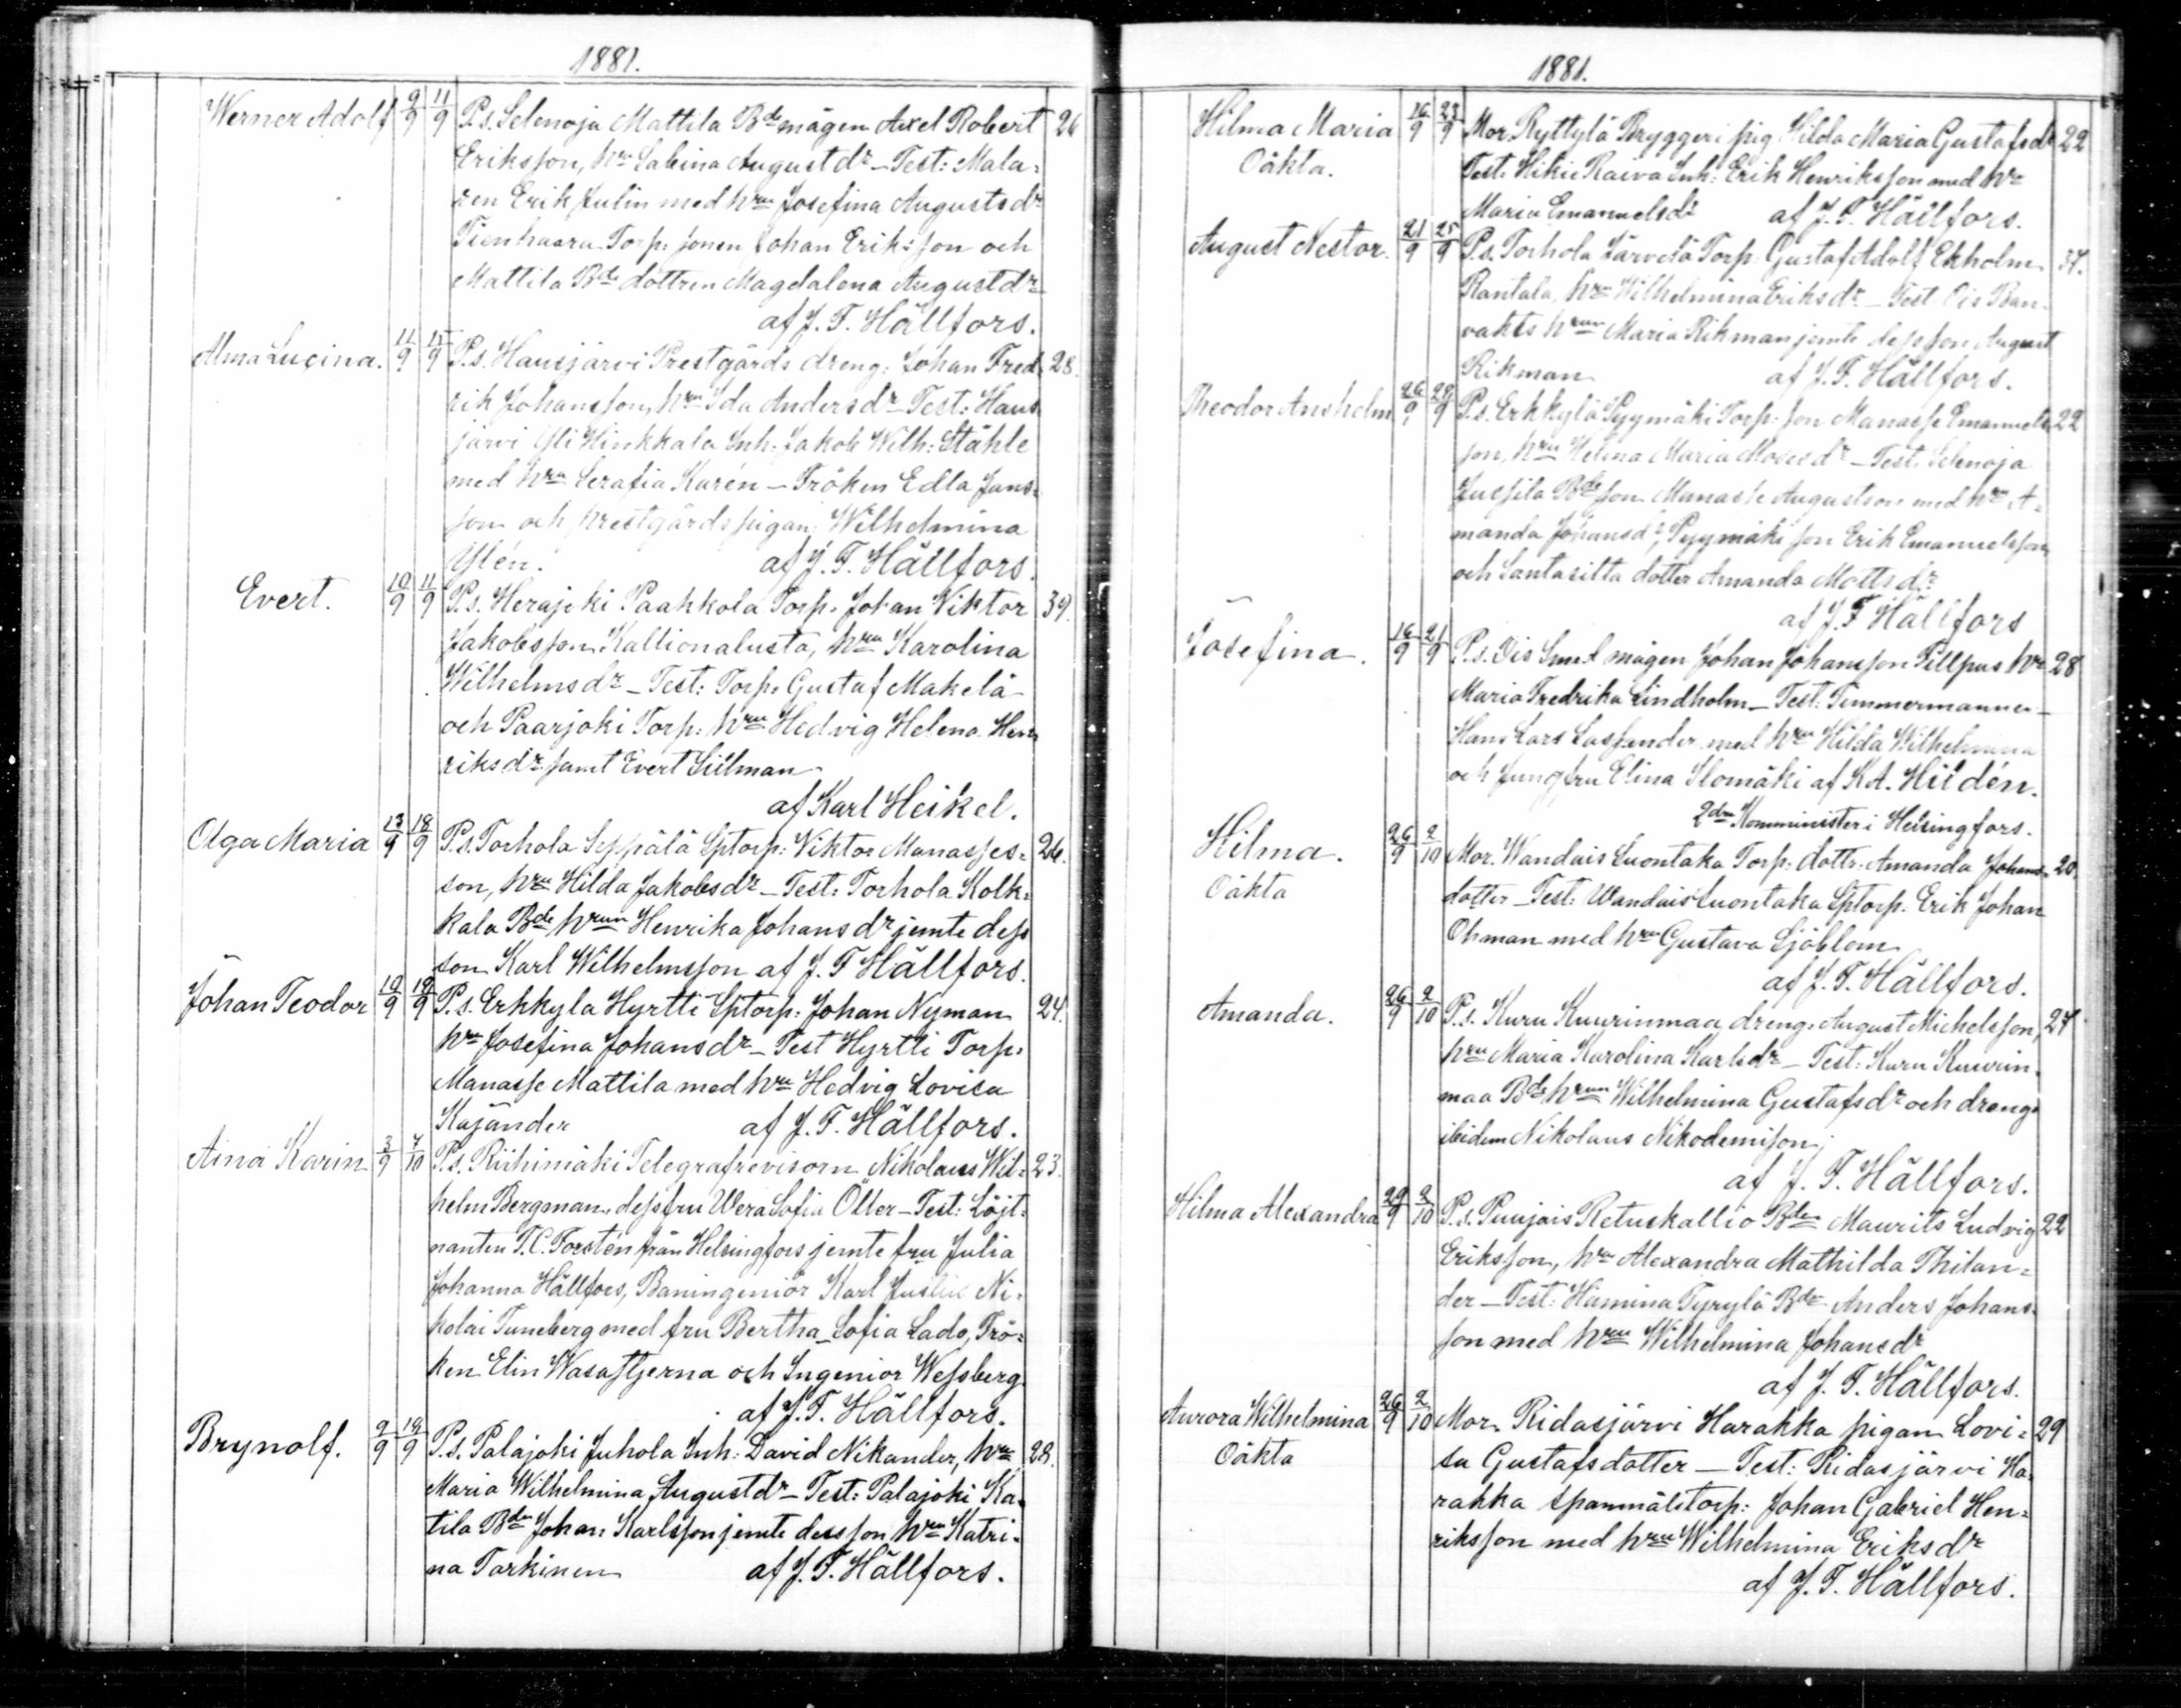 1881.
Werner Adolf 9/9 11/9 P.s. Selenoja Mattila Bde mågen Axel Robert 26
Eriksson, hru Sabina Augustdr – Test: Mala=
ren Erik Julin med hru Josefina Augustsdr
Tienhaara Torp: sonen Johan Eriksson och
Mattila Bde dottren Magdalena Augustdr
af J. F. Hällfors.
Alma Lucina. 11/9 15/9 P.s. Hausjärvi Prestgårds dreng: Johan Fred= 28.
rik Johansson, hru Ida Andersdr – Test: Haus
järvi Yli Hinkkala Inh: Jakob Wilh: Ståhle
med hru Serafia Karén – Fröken Edla Jans=
son och prestgårdspigan Wilhelmina
Ylén. af J. F. Hällfors.
Evert. 10/9 11/9 P.s. Herajoki Paahkola Torp. Johan Viktor 39.
Jakobsson Kallionalusta, hru Karolina
Wilhelmsdr – Test: Torp: Gustaf Makelä
och Paarjoki Torp: hru Hedvig Helena Hen
riksdr samt Evert Sillman
af Karl Heikel.
Olga Maria 13/9 18/9 P.s. Torhola Seppälä Sptorp: Viktor Manasses= 26.
son, hru Hilda Jakobsdr – Test: Torhola Kolk=
kala Bde hrun Henrika Johansdr jemte dess
son Karl Wilhelmsson af J. F Hällfors.
Johan Teodor 10/9 18/9 P.s. Erkkyla Hyrtti Sptorp: Johan Nyman 24.
hru Josefina Johansdr – Test Hyrtti Torp:
Manasse Mattila med hru Hedvig Lovisa
Kajander af J. F. Hällfors.
Aina Karin 3/9 7/10 P.s. Riihimäki Telegrafrevisorn Nikolaus Wil= 23.
helm Bergman, dess fru Wera Sofia Öller – Test: Löjt=
nanten F. C. Forstén från Helsingfors jemte fru Julia
Johanna Hällfors, Baningeniör Karl Ni=
kolai Tuneberg med fru Bertha Sofia Lado, Frö=
ken Elin Wasastjerna och Ingenior Wessberg
af J. F. Hällfors.
Brynolf. 9/9 19/9 P.s. Palajoki Juhola Inh: David Nikander, hru 28.
Maria Wilhelmina Augustdr – Test: Palajoki Ka=
tila Bden Johan Karlsson jemte dess son hru Katri=
na Tarkinen af J. F. Hällfors.
1881.
Hilma Maria 16/9 23/9 Mor Ryttylä Bryggeri pig Hilda Maria Gustafsdr 22
Oäkta. Test: Hikie Raiva Inh: Erik Henriksson med hru
Maria Emanuelsdr af J. F. Hällfors.
August Nestor. 21/9 25/9 P.s. Torhola Järvelä Torp: Gustaf Adolf Ekholm 34.
Rantala, hru Wilhelmina Eriksdr – Test Ois Ban=
vakts hrun Maria Rikman jemte dess son August
Rikman af J. F. Hällfors.
Theodor Anshelm 26/9 28/9 P.s. Erkkylä Pyymäki Torp: son Manasse Emanuels 22
son, hru Helena Maria Mosesdr – Test. Selenoja
Jussila Bde son Manasse Augustson med hru A=
manda Johansdr, Pyymäki son Erik Emanuelsson
och Santasilta dotter Amanda Mattsdr
af J. F Hällfors
Josefina. 16/9 21/9 P.s. Ois mågen Johan Johansson Pillpus hru 28
Maria Fredrika Lindholm – Test: Timmermannen
Hans Lars Lassander med hru Hilda Wilhelmina
och Jungfru Elina Ilomäki af K. A. Hildén.
2dre Komminister i Helsingfors.
Hilma. 26/9 2/10 Mor. Wandais Luontaka Torp: dottr: Amanda Johans= 20.
Oäkta dotter – Test: Wandais Luontaka Sptorp. Erik Johan
Öhman med hru Gustava Sjöblom
af J. F. Hällfors.
Amanda. 26/9 2/10 P.s. Kuru Kuurinmaa dreng: August Michelsson, 27.
hru Maria Karolina Karlsdr – Test: Kuru Kuurin=
maa Bde hrun Wilhelmina Gustafsdr och dreng:
ibidem Nikolaus Nikodemisson
af J. F. Hällfors.
Hilma Alexandra 29/9 2/10 P.s. Puujais Retuskallio Bden Maurits Ludvig 22
Eriksson, hru Alexandra Mathilda Thilan=
der – Test: Hamina Tyrylä Bde Anders Johans=
son med hru Wilhelmina Johansdr
af J. F. Hällfors.
Aurora Wilhelmina 26/9 2/10 Mor. Ridasjärvi Harakka pigan Lovi= 29
Oäkta sa Gustafsdotter – Test: Ridasjärvi Ha=
rakka spannmålstorp: Johan Gabriel Hen=
riksson med hru Wilhelmina Eriksdr
af J. F. Hällfors.